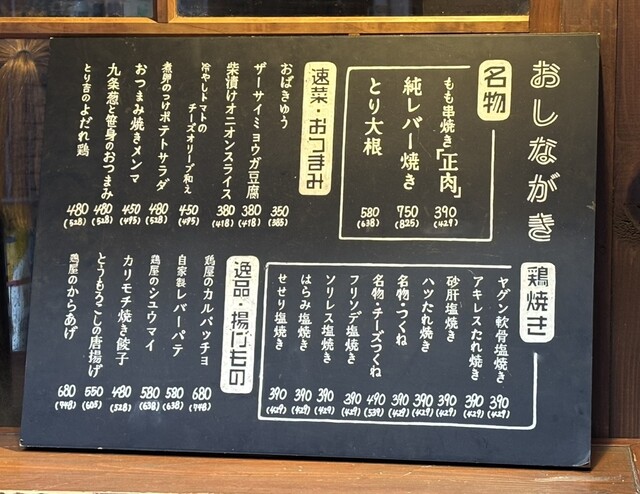 おしながき
名物
もも串焼き「正肉」 390 (429)
純レバー焼き 750 (825)
とり大根 580 (638)
速菜・おつまみ
おばきゅう 350 (385)
ザーサイミョウガ豆腐 380 (418)
柴漬けオニオンスライス 380 (418)
冷やしトマトの
チーズオリーブ和え 450 (495)
煮卵のっけポテトサラダ 480 (528)
おつまみ焼きメンマ 450 (495)
九条葱と笹身のおつまみ 480 (528)
とり吉のよだれ鶏 480 (528)
鶏焼き
ヤゲン軟骨塩焼き 390 (429)
アキレスたれ焼き 390 (429)
砂肝塩焼き 390 (429)
ハツたれ焼き 390 (429)
名物・つくね 390 (429)
名物・チーズつくね 490 (539)
フリソデ塩焼き 390 (429)
ソリレス塩焼き 390 (429)
はらみ塩焼き 390 (429)
せせり塩焼き 390 (429)
逸品・揚げもの
鶏屋のカルパッチョ 680 (748)
自家製レバーパテ 580 (638)
鶏屋のシュウマイ 580 (638)
カリモチ焼き餃子 480 (528)
とうもろこしの唐揚げ 550 (605)
鶏屋のからあげ 680 (748)